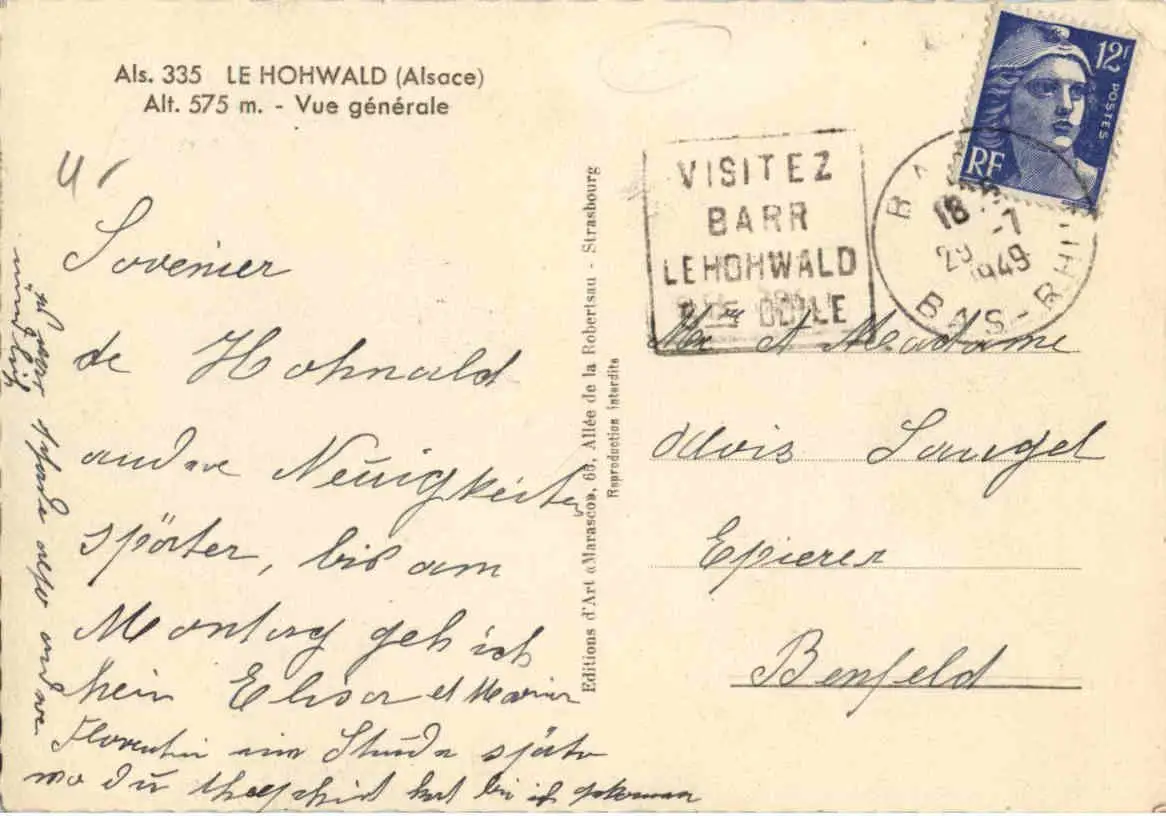 Als. 335 LE HOHWALD (Alsace)
Alt. 575 m. - Vue générale
Sovenier
de Hohwald
andere Neuigkeiten
später, bis am
Montag geh ich
hein Elisa et Maria
Florentin ein Stunde später
wo du hast bin ich gekommen
mündlig
Editions d'Art «Marasco», 68, Allée de la Robertsau - Strasbourg
Reproduction interdite
VISITEZ
BARR
LE HOHWALD
STE ODILE
12F
POSTES
RF
18
29 -7
1949
BAS-RHIN
Mr et Madame
Alois Langel
Epicier
Benfeld